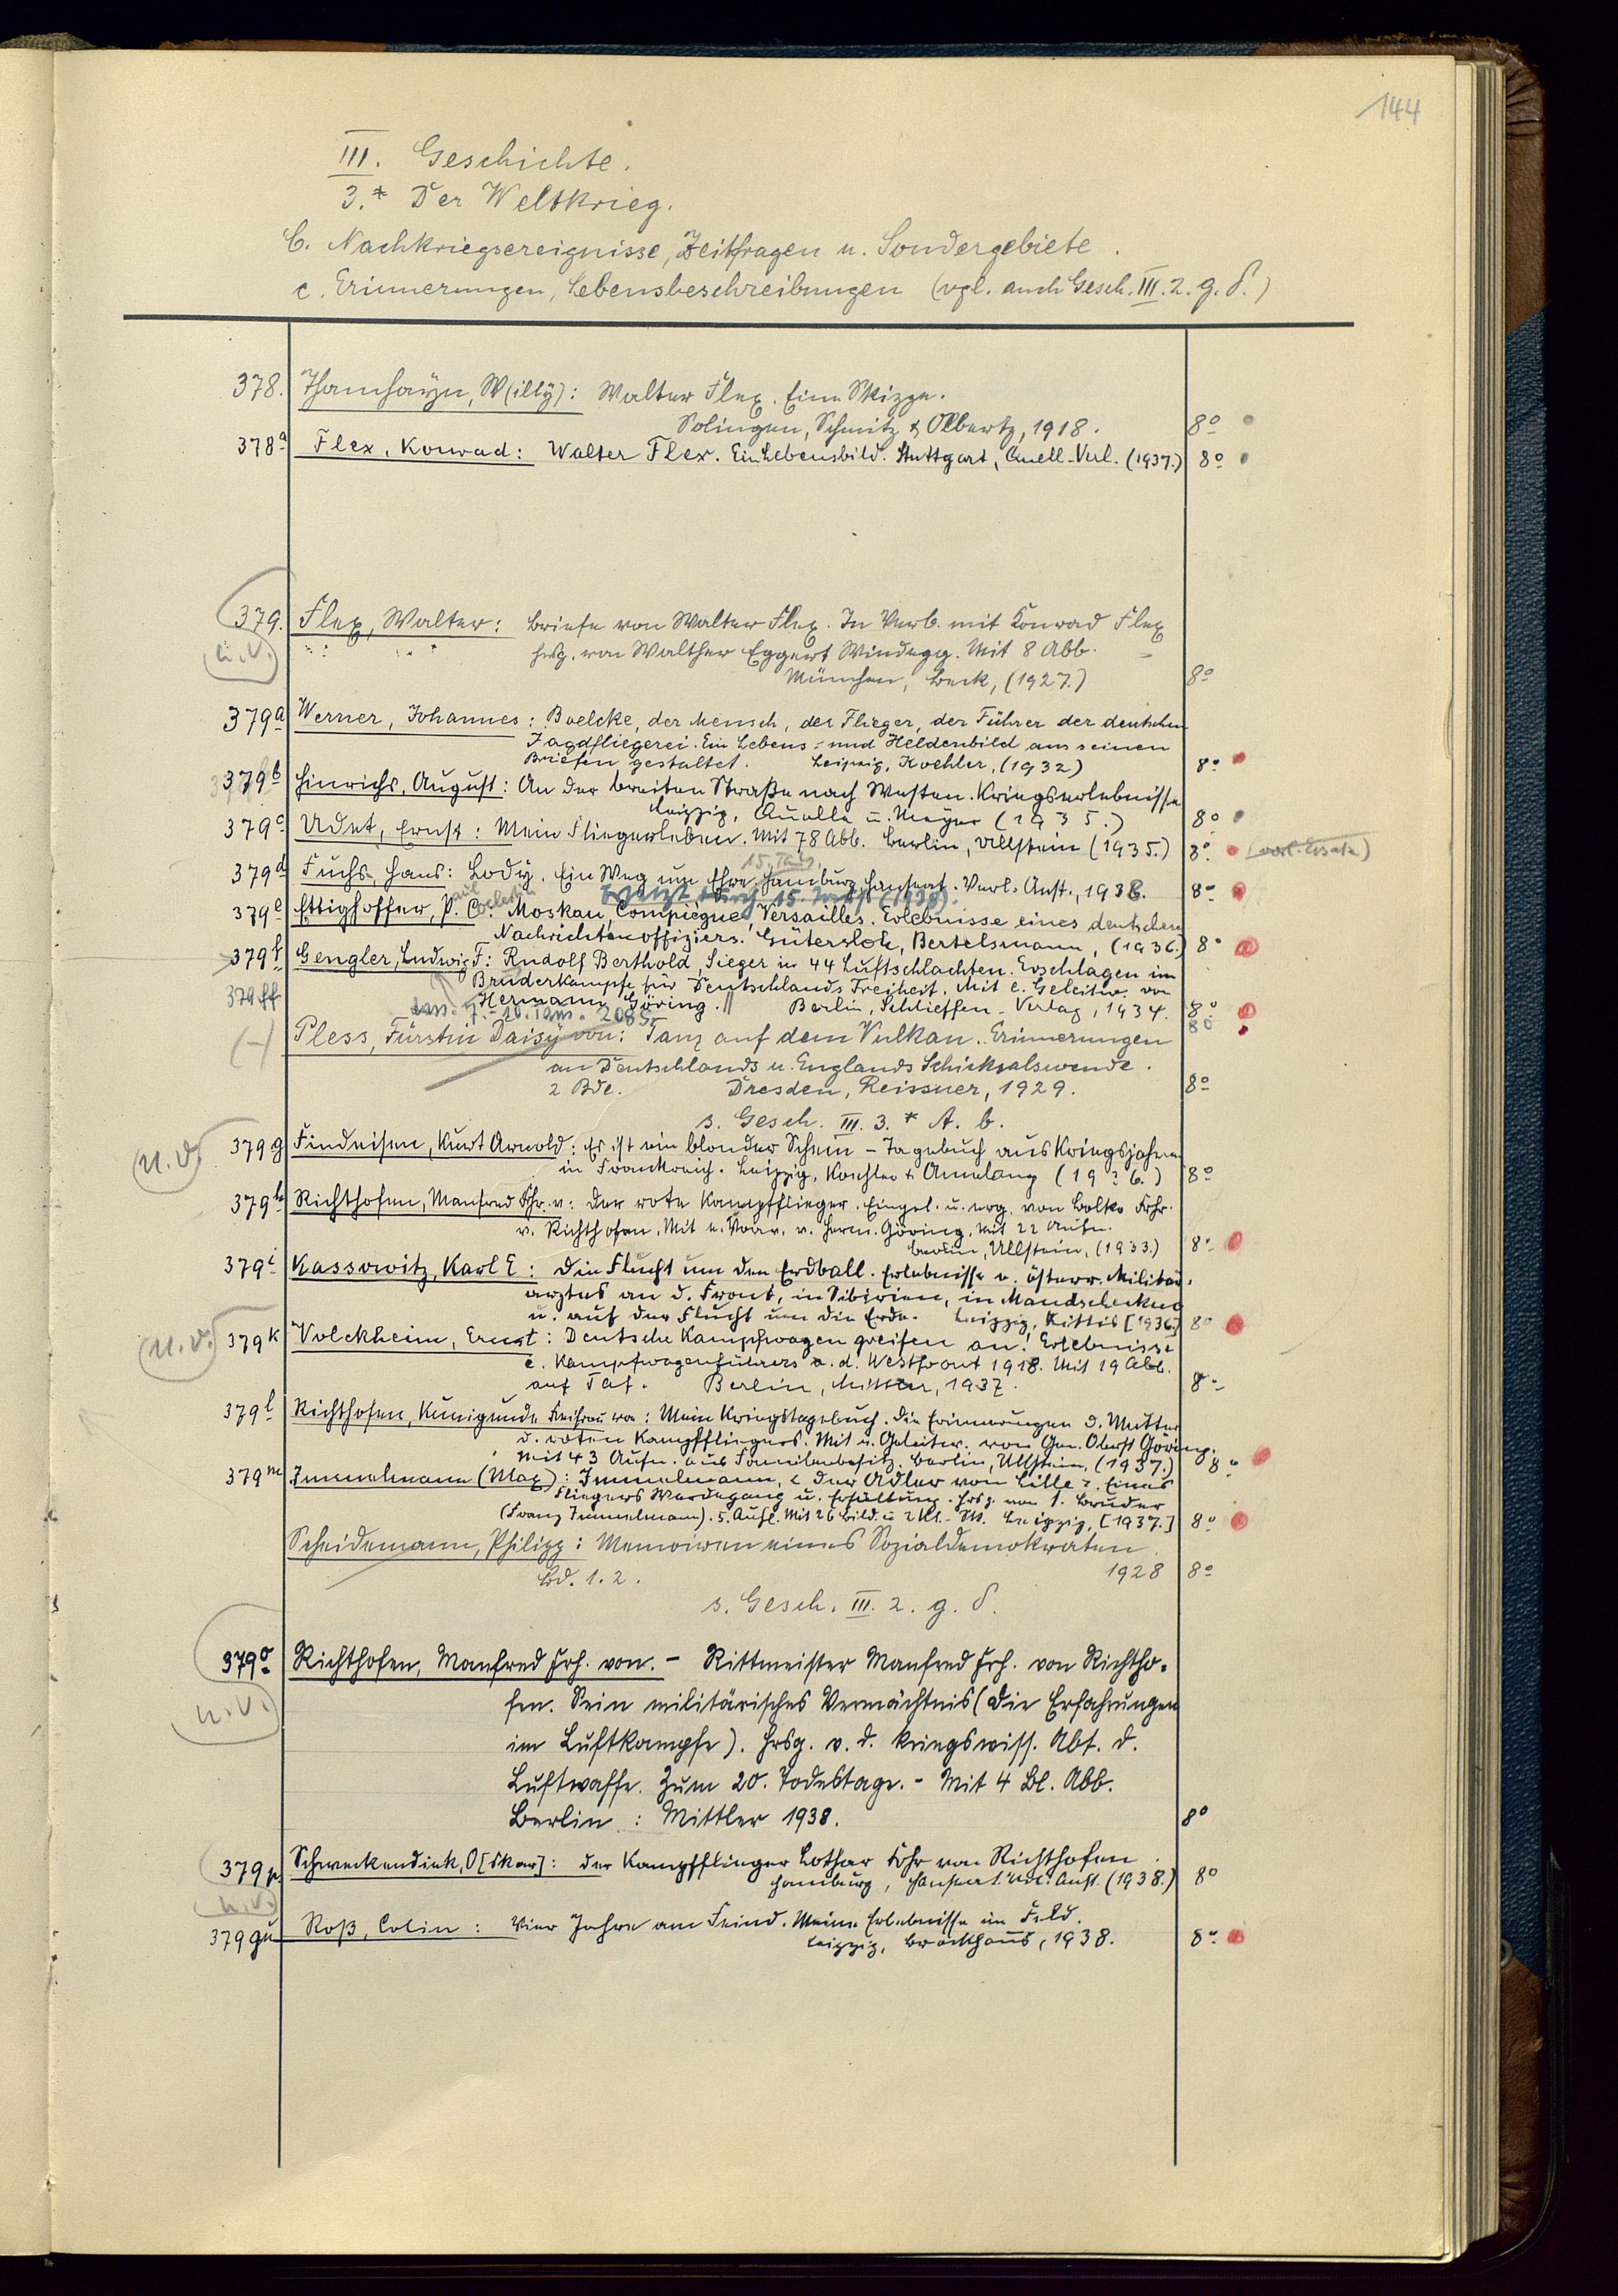 144
III. Geschichte.
3.* Der Weltkrieg.
C. Nachkriegsereignisse, Zeitfragen u. Sondergebiete.
c. Erinnerungen, Lebensbeschreibungen (vgl. auch Gesch. III. 2. g. δ.)
378. Thamhayn, W(illy): Walter Flex. Eine Skizze.
Solingen, Schmitz & Olbertz, 1918. 8º
378a Flex, Konrad: Walter Flex. Ein Lebensbild. Stuttgart, Quell-Verl. (1937.) 8º
379. Flex, Walter: Briefe von Walter Flex. In Verb. mit Konrad Flex
n.v. hrsg. von Walther Eggert Windegg. Mit 8 Abb.
München, Beck, (1927.) 8º
379a Werner, Johannes: Boelcke, der Mensch, der Flieger, der Führer der deutschen
Jagdfliegerei. Ein Lebens- und Heldenbild aus seinen
Briefen gestaltet. Leipzig, Koehler, (1932) 8º
379b Hinrichs, August: An der breiten Straße nach Westen. Kriegserlebnisse
Leipzig, Quelle u. Meyer (1935.) 8º
379c Udet, Ernst: Mein Fliegerleben. Mit 78 Abb. Berlin, Ullstein (1935.) 8º (vorl. Ersatz)
15. Taus.
379d Fuchs, Hans: Lody. Ein Weg um Ehre. Hamburg, Hanseat. Verl. Anst., 1936. 8º
Ersetzt durch 15. (1938).
379e Ettighoffer, P. C.: Moskau, Compiègne, Versailles. Erlebnisse eines deutschen
Nachrichtenoffiziers. Gütersloh, Bertelsmann, (1936.) 8º
379f Gengler, Ludwig F: Rudolf Berthold, Sieger in 44 Luftschlachten. Erschlagen im
Bruderkampfe für Deutschlands Freiheit. Mit e. Geleitw. von
379ff Hermann Göring. // Berlin, Schlieffen-Verlag, 1934. 8º
7.-10. Taus. 8º
(-) Pless, Fürstin Daisy von: Tanz auf dem Vulkan. Erinnerungen
an Deutschlands u. Englands Schicksalswende.
2 Bde. Dresden, Reissner, 1929. 8º
s. Gesch. III. 3.* A. b.
n.v. 379g Findeisen, Kurt Arnold: Es ist ein blonder Schein – Tagebuch aus Kriegsjahren
in Frankreich. Leipzig, Koehler & Amelang (1936.) 8º
379h Richthofen, Manfred Frhr. v: Der rote Kampfflieger. Eingel. u. erg. von Bolko Frhr.
v. Richthofen. Mit e. Vorw. v. Herm. Göring. Mit 22 Aufn.
Berlin, Ullstein, (1933.) 8º
379i Kassowitz, Karl E: Die Flucht um den Erdball. Erlebnisse e. österr. Militär-
arztes an d. Front, in Sibirien, in Mandschukuo
u. auf der Flucht um die Erde. Leipzig, Kittis [1936.] 8º
n.v. 379k Volckheim, Ernst: Deutsche Kampfwagen greifen an! Erlebnisse
e. Kampfwagenführers a. d. Westfront 1918. Mit 19 Abb.
auf Taf. Berlin, Mittler, 1937. 8º
379l Richthofen, Kunigunde Freifrau von: Mein Kriegstagebuch. Die Erinnerungen d. Mutter
d. roten Kampffliegers. Mit e. Geleitw. von Gen. Oberst Göring.
Mit 43 Aufn. aus Familienbesitz. Berlin, Ullstein, (1937.) 8º
379m Immelmann (Max): Immelmann, < der Adler von Lille >. Eines
Fliegers Werdegang u. Erfüllung. Hrsg. von s. Bruder
(Franz Immelmann). 5. Aufl. Mit 26 Bild. u. 2 Kt.-Sk. Leipzig, [1937.] 8º
Scheidemann, Philipp: Memoiren eines Sozialdemokraten.
Bd. 1. 2. 1928 8º
s. Gesch. III. 2. g. δ.
379o Richthofen, Manfred Frh. von. – Rittmeister Manfred Frh. von Richtho-
n.v. fen. Sein militärisches Vermächtnis (Die Erfahrungen
im Luftkampfe). Hrsg. v. d. kriegswiss. Abt. d.
Luftwaffe. Zum 20. Todestage. – Mit 4 Bl. Abb.
Berlin: Mittler 1938. 8º
379p Schweckendiek, O[skar]: Der Kampfflieger Lothar Frhr von Richthofen.
n.v. Hamburg, Hanseat. Verl. Anst. (1938.) 8º
379qu Roß, Colin: Vier Jahre am Feind. Meine Erlebnisse im Feld.
Leipzig, Brockhaus, 1938. 8º